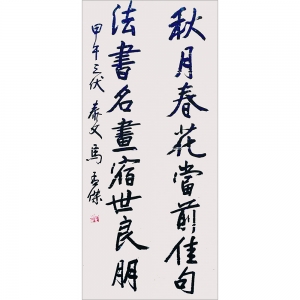 秋月春花當前佳句
法書名畫宿世良朋
甲午三伏 養文 馬孟傑